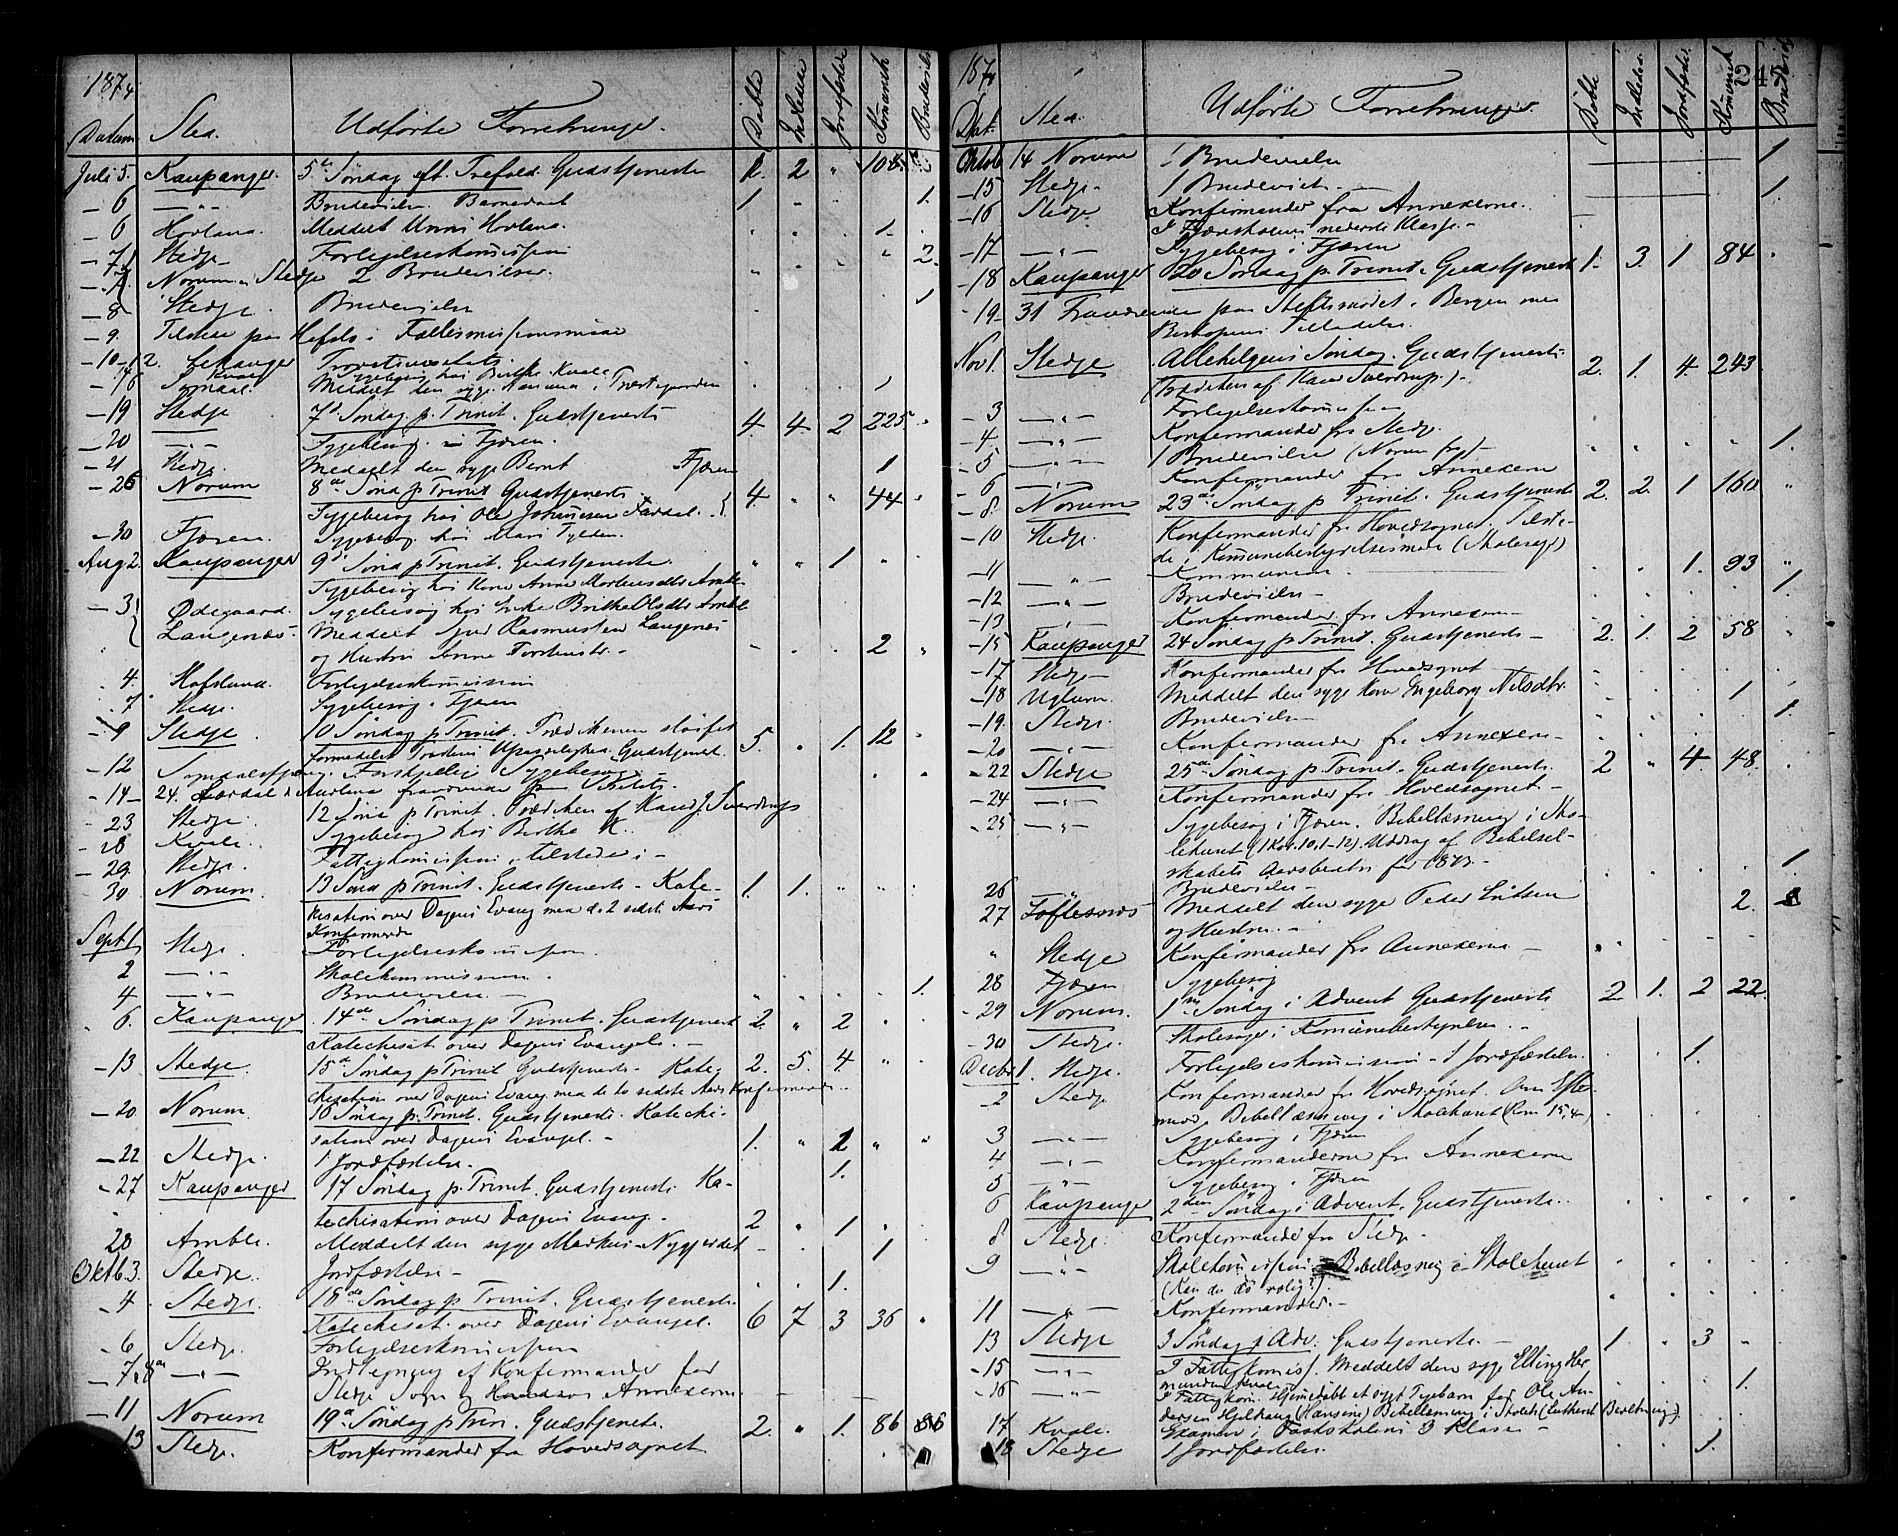 1874
Datum Sted. Udförte Forretninger. Döbte Indledede Jordfæstede Kommunik. Brudevielser
Juli 5. Kaupanger. 5te Söndag eft. Trefold. Gudstjeneste 2 " 108
- 6 - " - Brudevielse. Barnedaab 1 1.
- 6 Hovland. Meddelt Hovland. 1
- 7 Stedje Forligelseskommission
- 7 Norum, Stedje 2 Brudevielser. 2.
- 8 Stedje. Brudevielse 1
- 9. Tilstede paa Hafslo i Fællesmissionsmöde
- 10-12. Lekanger
Sygebesög hos Brithe Kvale
Sogndal. Meddelt den syge
- 19 Stedje 7de Söndag p. Trinit. Gudstjeneste 4. 4. 2 225.
- 20 - " - Sygebesög i Fjæren.
- 21 Stedje. Meddelt den syge Bernt Fjæren 1
- 26 Norum 8de Sönd. p Trinit Gudstjeneste 4 " " 44
Sygebesög hos Ole Johannesen
- 30 Fjæren. Sygebesög hos Mari
Aug 2. Kaupanger 9de Sönd p Trinit. Gudstjeneste. " " 1 "
Sygebesög hos Kone Anne Mortensdtr Amble
- 3 Ödegaard. Sygebesög hos Enke Brithe Olsdtr Amble
Langenæs. Meddelt Sjur Rasmussen Langenæs
og Hustru Anne 2
4. Hafslund. Forligelseskommission
7 Stedje. Sygebesög i Fjæren
- 9 Stedje 10 Söndag p Trinit. Prædikenen slöifet
formedelst Præstens Upasselighed. Gudstjenest. 5. " 1. 12
- 12 Sogndalsfjæren. Forskjellig Sygebesög
- 14 - 24. Lærdal & Aurland fraværende
23 Stedje. 12 Sönd p Trinit. Prædiken af Kand J. Sverdrup
- 28 Kvale. Sygebesög hos Berthe K.
- 29. Stedje. Fattigkommission, tilstede i -
30 Norum. 13 Sönd p Trinit. Gudstjeneste - Kate- 1. 1. " "
kisation over Dagens Evang med de 2 sidste Aars
Konfirmerede
Sept 1 Stedje. Forligelseskommission.
2 - " - Skolekommission.
4 - " - Brudevielse - 1.
6. Kaupanger 14de Söndag p Trinit. Gudstjeneste 2. " 2
Katechisat. over Dagens Evangel. -
- 13 Stedje. 15de Söndag p Trinit Gudstjeneste - Kate- 2. 5. 4
chisation over Dagens Evang med de to sidste Aars Konfirmerede -
- 20. Norum. 16 Söndag p. Trinit. Gudstjeneste. Katechi-
sation over Dagens Evangel. - 1. " 2 "
- 22 Stedje. 1 Jordfæstelse. 1.
- 27 Kaupanger 17 Söndag p. Trinit. Gudstjeneste Ka-
techisation over Dagens Evang. - 2 " 1
28 Amble. Meddelt den syge Markus 1
Oktb. 3. Stedje. Jordfæstelse - 1.
- 4 Stedje. 18de Söndag p Trinit. Gudstjeneste.
Katechisat. over Dagens Evangel. 6 7 3 36
- 6 Stedje. Forligelseskommission
- 7, 8de - " - Indtegning af Konfirmander for
Stedje Sogn og Annexerne.
- 11 Norum 19de Söndag p Trin. Gudstjeneste. 2. " 1. 86
13 Stedje. Konfirmander fra Hovedsognet
1874 245
Dat. Sted. Udförte Forretninger. Döbte Indledede Jordfæst. Kommunik Brudevielser
Oktob 14 Norum 1 Brudevielse 1
- 15 Stedje. 1 Brudeviels. 1.
- 16 Stedje Konfirmander fra Annexerne.
I Fjæreskolens nederste Klasse. -
- 17 - " - Sygebesög i Fjæren
- 18 Kaupanger 20 Söndag p. Trinit. Gudstjeneste 1. 3. 1 84
- 19 - 31 Fraværende paa Stiftsmödet i Bergen med
Biskopens Tilladelse.
Nov 1. Stedje Allehelgens Söndag. Gudstjeneste. 2. 1. 4. 243
(Prædiken af Kand Sverdrup.) -
- 3 - " - Forligelseskommission
- 4. - " - Konfirmander fra Stedje.
- 5 - " - 1 Brudevielse (Norum 1.
- 6 - " - Konfirmander fra Annexerne
- 8 Norum 23de Söndag p Trinit. Gudstjeneste 2. 2. 1 160 "
- 10 Stedje. Konfirmander fra Hovedsognet. Tilste-
de i Kommunebestyrelsesmöde (Skolesag)
- 11 - " - Kommunion 1. 93 "
- 12 - " - Brudevielse - 1.
- 13 - " - Konfirmander fra Annexerne -
- 15 Kaupanger 24 Söndag p Trinit. Gudstjeneste - 2. 1. 2 58
- 17 Stedje Konfirmander fra Hovedsognet
- 18 Uglum. Meddelt den syge Kone Ingeborg Nilsdtr. 1
- 19. Stedje. Brudevielse - 1.
- 20 - " - Konfirmander fra Annexerne -
- 22 Stedje 25de Söndag p Trinit. Gudstjeneste. 2 " 4. 48.
- 24 - " - Konfirmander fra Hovedsognet -
- 25 - " - Sygebesög i Fjæren. Bibellæsning i Sko-
lehuset (1 Kor. 10, 1-12). Uddrag af Bibelsel-
skabets Aarsberetn for 1873. -
26 Brudevielse - 1.
27 Löftesnæs Meddelt den syge Peder
og Hustru. - 2.
" Stedje Konfirmander fra Annexerne -
28 Fjæren Sygebesög
- 29 Norum. 1ste Söndag i Advent Gudstjeneste 2 1. 2 22.
- 30 Stedje. Skolesager i Kommunebestyrelsen. -
Decbr 1. Stedje. Forligelseskommission - 1 Jordfæstelse. 1.
- 2 Stedje Konfirmander fra Hovedsognet. Om Efter-
midd. Bibellæsning i Skolehuset (Rom 15, 4 -)
3 - " - Sygebesög i Fjæren
4 - " - Konfirmanderne fra Annexerne
5 - " - Sygebesög i Fjæren
6 Kaupanger 2den Söndag i Advent, Gudstjeneste.
8 Stedje. Konfirmander fra Stedje
9 - " - Skolekommission Bibellæsning i Skolehuset
(Kan du dö rolig?)
11 - " - Konfirmander. -
13 Stedje 3 Söndag i Adv. Gudstjeneste - 1. " 3
- 15 - " - I Fattigkomiss. Meddelt den syge Elling Her
mundsen 1.
- 16 - " - I Fattigkom. Hjemmedöbt et sygt Pigebarn for Ole An-
dersen (Hansine) Bibellæsning i Skoleh (
17 Kvale. Examen i Fastskolens 3 Klasse -
18 Stedje 1 Jordfæstelse. 1.